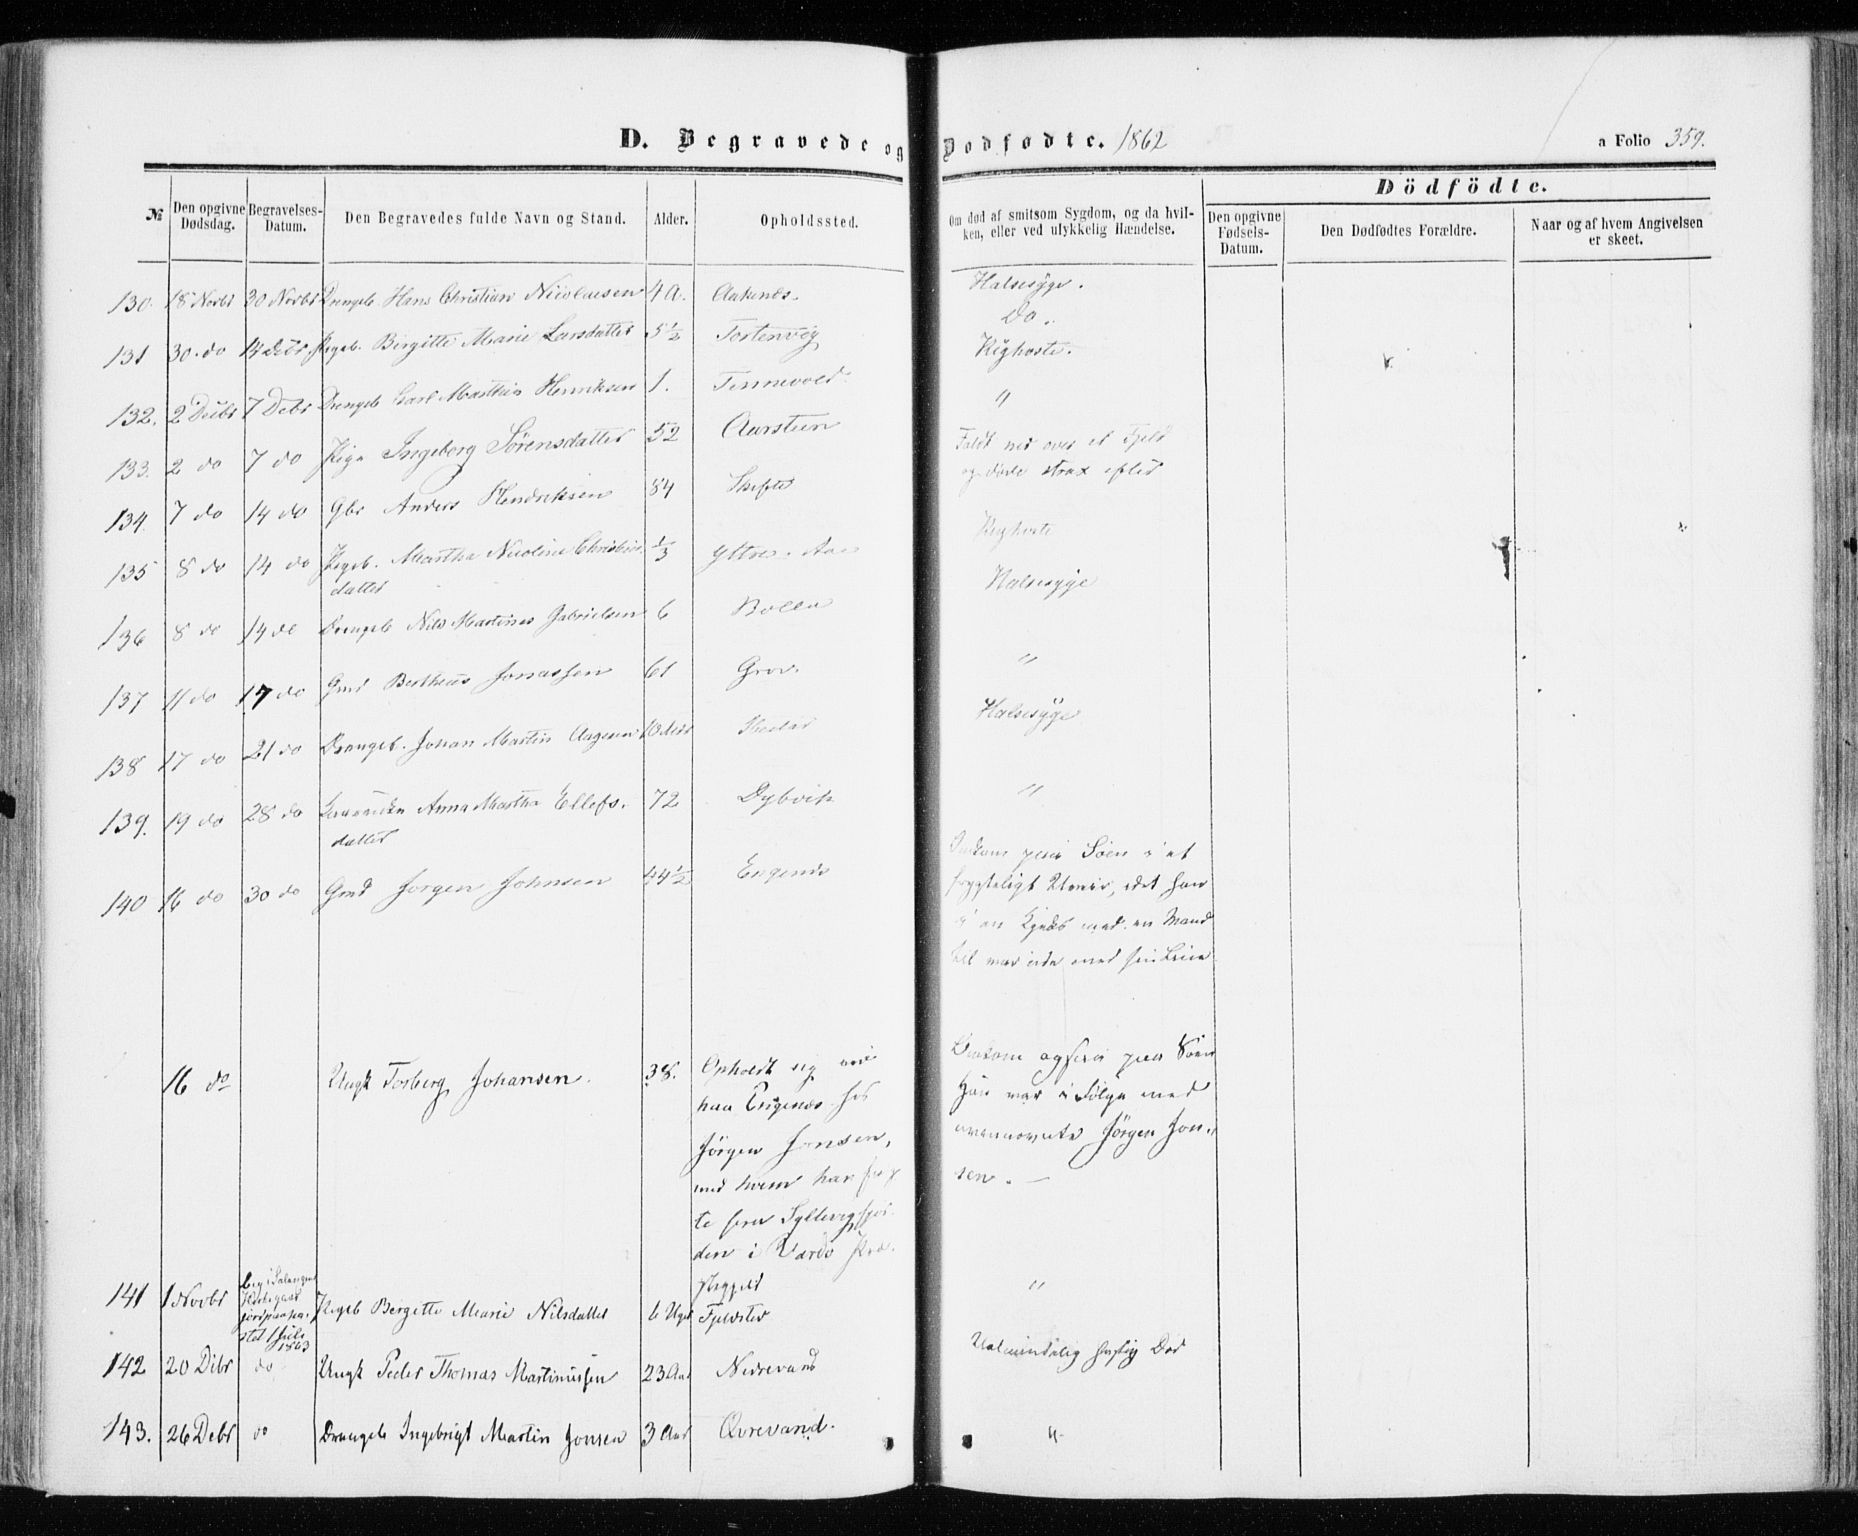 D. Begravede og Dødfødte. 1862
a Folio 359.
Dödfödte.
№
Den opgivne Dødsdag.
Begravelses-Datum.
Den Begravedes fulde Navn og Stand.
Alder.
Opholdssted.
Om død af smitsom Sygdom, og da hvil-
ken, eller ved ulykkelig Hændelse.
Den opgivne Fødsels-Datum.
Den Dødfødtes Forældre.
Naar og af hvem Angivelsen
er skeet.
130. 18 Novbr 30 Novbr Drengeb Hans Christian Nicolaisen 4 A. Aakenes. Halsesyge.
131 30. do 14 Debr Pigeb. Birgitte Marie Larsdatter 5½ Tostenvig Do.
132. 2 Debr 7 Debr Drengeb Carl Martin Henriksen 1. Tennevold. Kighoste.
133. 2 do 7 do Pige Ingeborg Sørensdatter 52 Aarsteen "
134. 7 do 14 do Gbr Anders Hendriksen 84 Skefte Faldt ned over et Fjeld
og døde strax efter
135 8 do 14 do Pigeb. Martha Nicoline Christians 1/3 Yttre. Aa Kighoste
datter
136 8 do 14 do Drengeb Nils Martines Gabrielsen 6 Bolla Halsesyge
137 11 do 17 do Gmd Bertheus Jonassen 61 Grov. "
138 17 do 21 do Drengeb. Johan Martin Aagesen 10 Halsesyge
139. 19 do 28 do Anna Martha Ellefs. 72 Dybvik "
datter
140 16 do 30 do Gmd Jørgen Johnsen 44½ Engenes Omkom paa Søen i et
frygteligt Uveir, idet han
i en med en Mand
til var ude med sin
16 do Ungk Torberg Johansen. 38. Opholdt sig Omkom ogsaa paa Søen
paa Engenes hos Han var i Følge med
Jörgen Jonsen, ovennævnte Jörgen Jon-
med hvem han sen. —
i Vardö Præ-
stegjeld
141 1 Novbr beg i Salangen
Kirkegaard
jordpaaka-
stet 1 Juli
1863 Pigeb Bergette Marie Nilsdatter 6 Uger Fjeldster "
142 20 Dbr do Ungk Peder Thomas Martinussen 23 Aar Nedrevand Ualmindelig hastig Död
143. 26 Debr do Drengeb Ingebrigt Martin Jonsen 3 Aar Övrevand. "